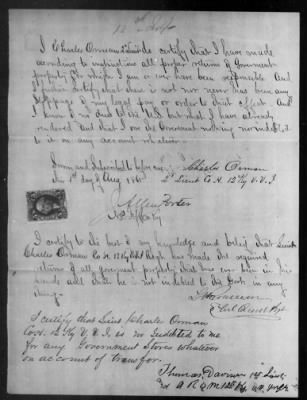 I Charles Orman 2 Lieut do certify that I have made
according to instructions all proper returns of Government
property for which I am or may have been responsible And
further certify that there is not nor never has been any
stoppage of my legal pay or order to that effect. And
I know no dues to the U.S. but what I have already
rendered and that I owe the Government nothing nor indebted to
it on any account whatever.
Sworn and Subscribed to before me
this 1st day of Aug 186
Charles Orman
2d Lieut Co. H. 12 Ky V. V. I
Allen Porter
I certify to the best of my knowledge and belief that Lieut
Charles Orman Co H. 12 Ky Regt has made the required
returns of all government property that has ever been in his
hands and that he is not indebted to the Govt in any
thing.
I certify that Lieut Charles Orman
Co H. 12 Ky V. V. I. is no indebted to me
for any Government Stores whatever
on account of transfer.
Thomas 1st Lieut
A R Q M 12 Ky V V